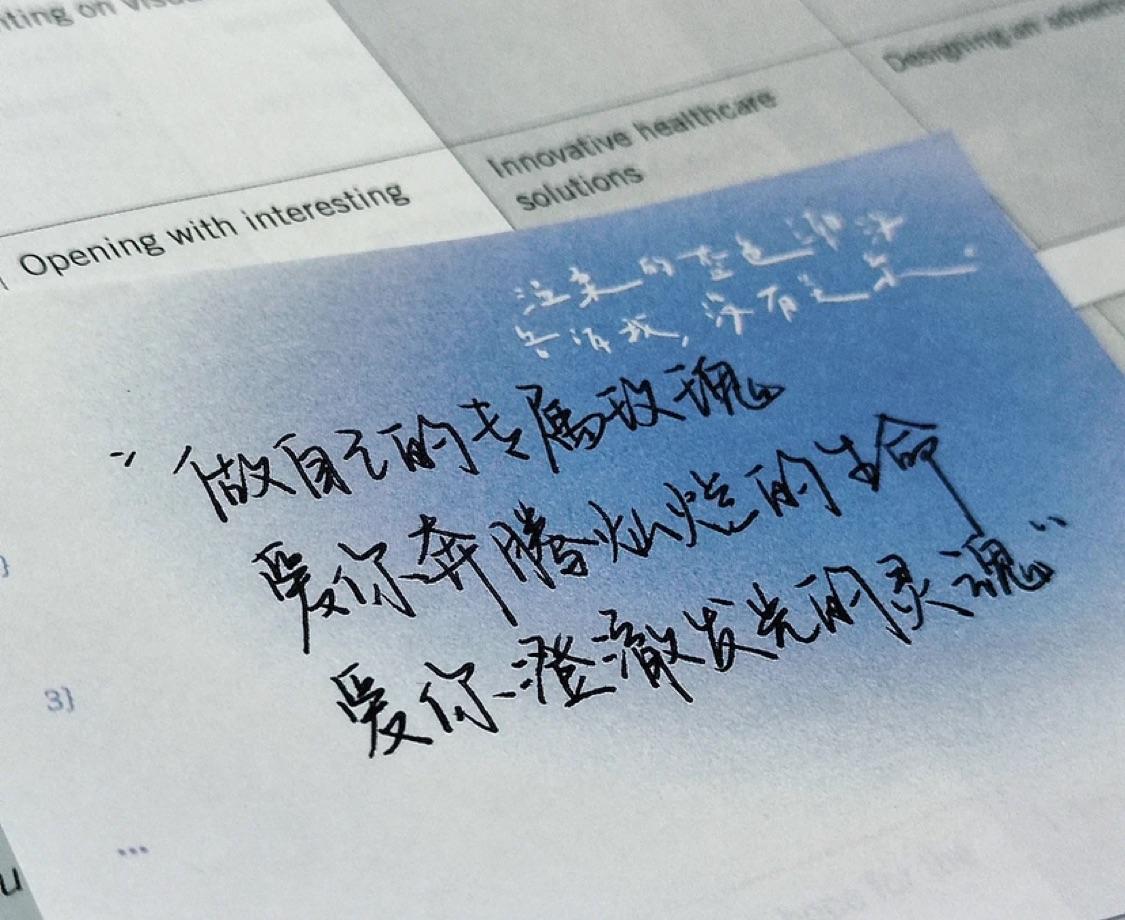 nting on visua
Designing an advert
Innovative healthcare
solutions
Opening with interesting
的蓝色
告诉我，没有
"做自己的专属玫瑰
爱你奔腾灿烂的生命
爱你澄澈发光的灵魂"
3}
...
u